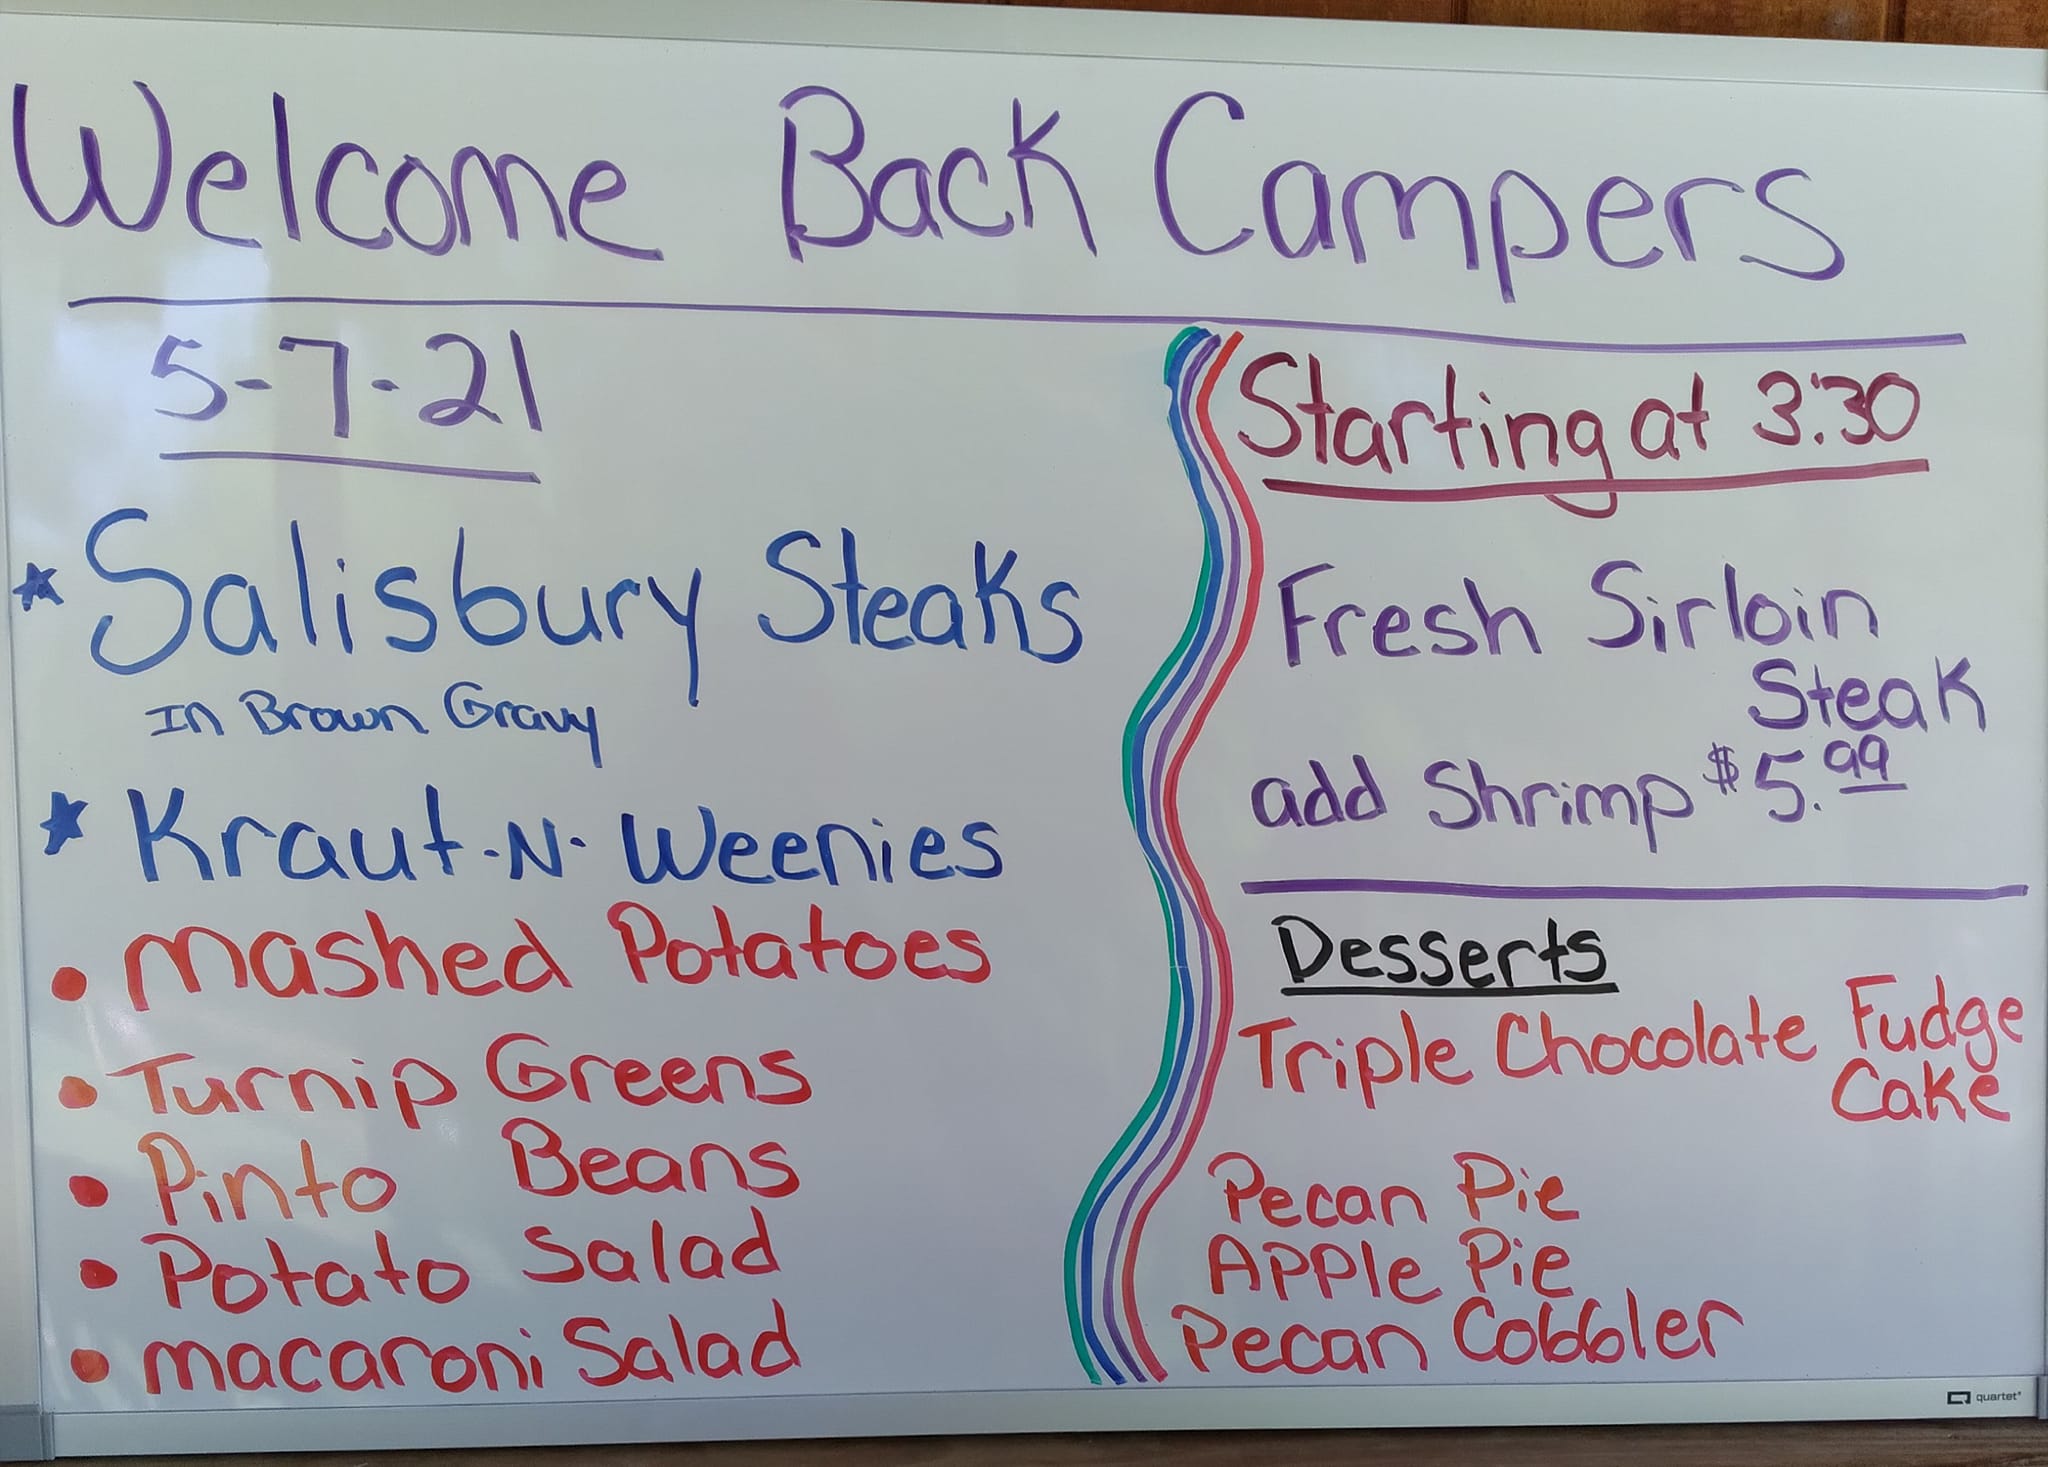 Welcome Back Campers
5-7-21
★ Salisbury Steaks
In Brown Gravy
★ Kraut-N-Weenies
• mashed Potatoes
• Turnip Greens
• Pinto Beans
• Potato Salad
• macaroni Salad
Starting at 3:30
Fresh Sirloin
Steak
add Shrimp $5.99
Desserts
Triple Chocolate Fudge
Cake
Pecan Pie
Apple Pie
Pecan Cobbler
quartet